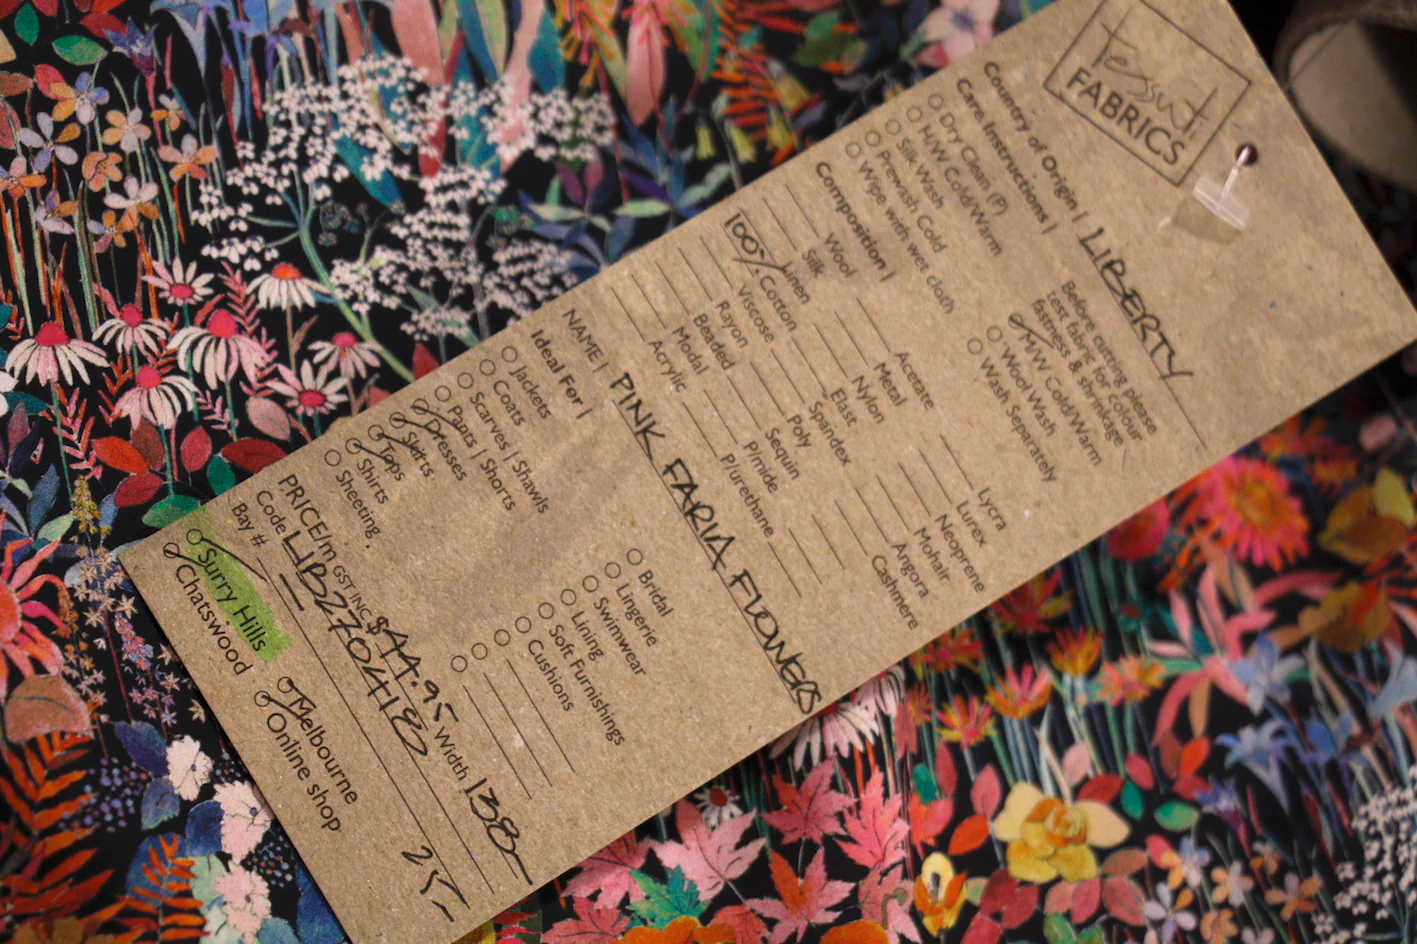 tessuti
FABRICS
Country of Origin | LIBERTY
Care Instructions |
Before cutting please
test fabric for colour
fastness & shrinkage
Dry Clean (P)
H/W Cold/Warm
Silk Wash
Prewash Cold
Wipe with wet cloth
M/W Cold/Warm
Wool Wash
Wash Separately
Composition |
Wool
Silk
Linen
100% Cotton
Viscose
Rayon
Beaded
Modal
Acrylic
Acetate
Metal
Nylon
Elast
Spandex
Poly
Sequin
P/mide
P/urethane
Lycra
Lurex
Neoprene
Mohair
Angora
Cashmere
NAME | PINK FARIA FLOWERS
Ideal For |
Jackets
Coats
Scarves | Shawls
Pants | Shorts
Dresses
Skirts
Tops
Shirts
Sheeting
Bridal
Lingerie
Swimwear
Lining
Soft Furnishings
Cushions
PRICE/m GST INC $44.95 Width 138
Code LIB270418
Bay #
Surry Hills
Melbourne
Chatswood
Online shop
25